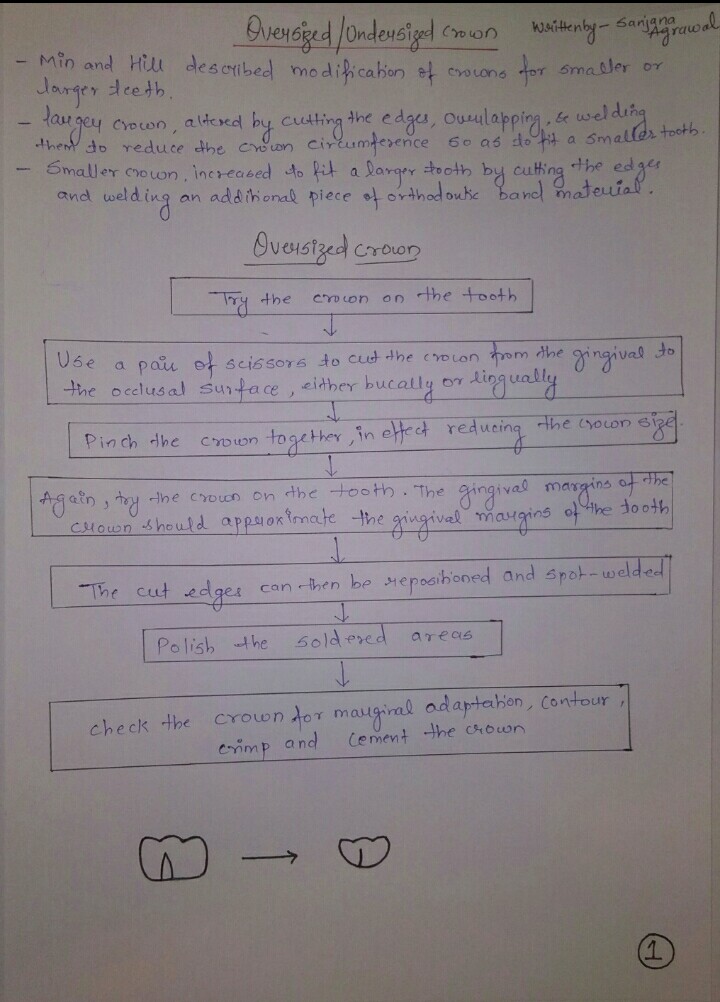 Oversized/Undersized crown
Written by - Sanjana Agrawal
- Min and Hill described modification of crowns for smaller or
larger teeth.
- larger crown, altered by cutting the edges, overlapping, & welding
them to reduce the crown circumference so as to fit a smaller tooth.
- Smaller crown, increased to fit a larger tooth by cutting the edges
and welding an additional piece of orthodontic band material.
Oversized crown
Try the crown on the tooth
Use a pair of scissors to cut the crown from the gingival to
the occlusal surface, either bucally or lingually
Pinch the crown together, in effect reducing the crown size.
Again, try the crown on the tooth. The gingival margins of the
crown should approximate the gingival margins of the tooth
The cut edges can then be repositioned and spot-welded
Polish the soldered areas
check the crown for marginal adaptation, contour,
crimp and cement the crown
1